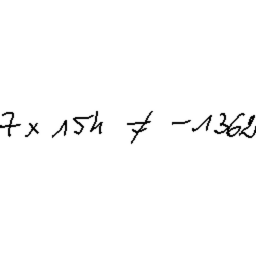 7 × 15h ≠ -1362